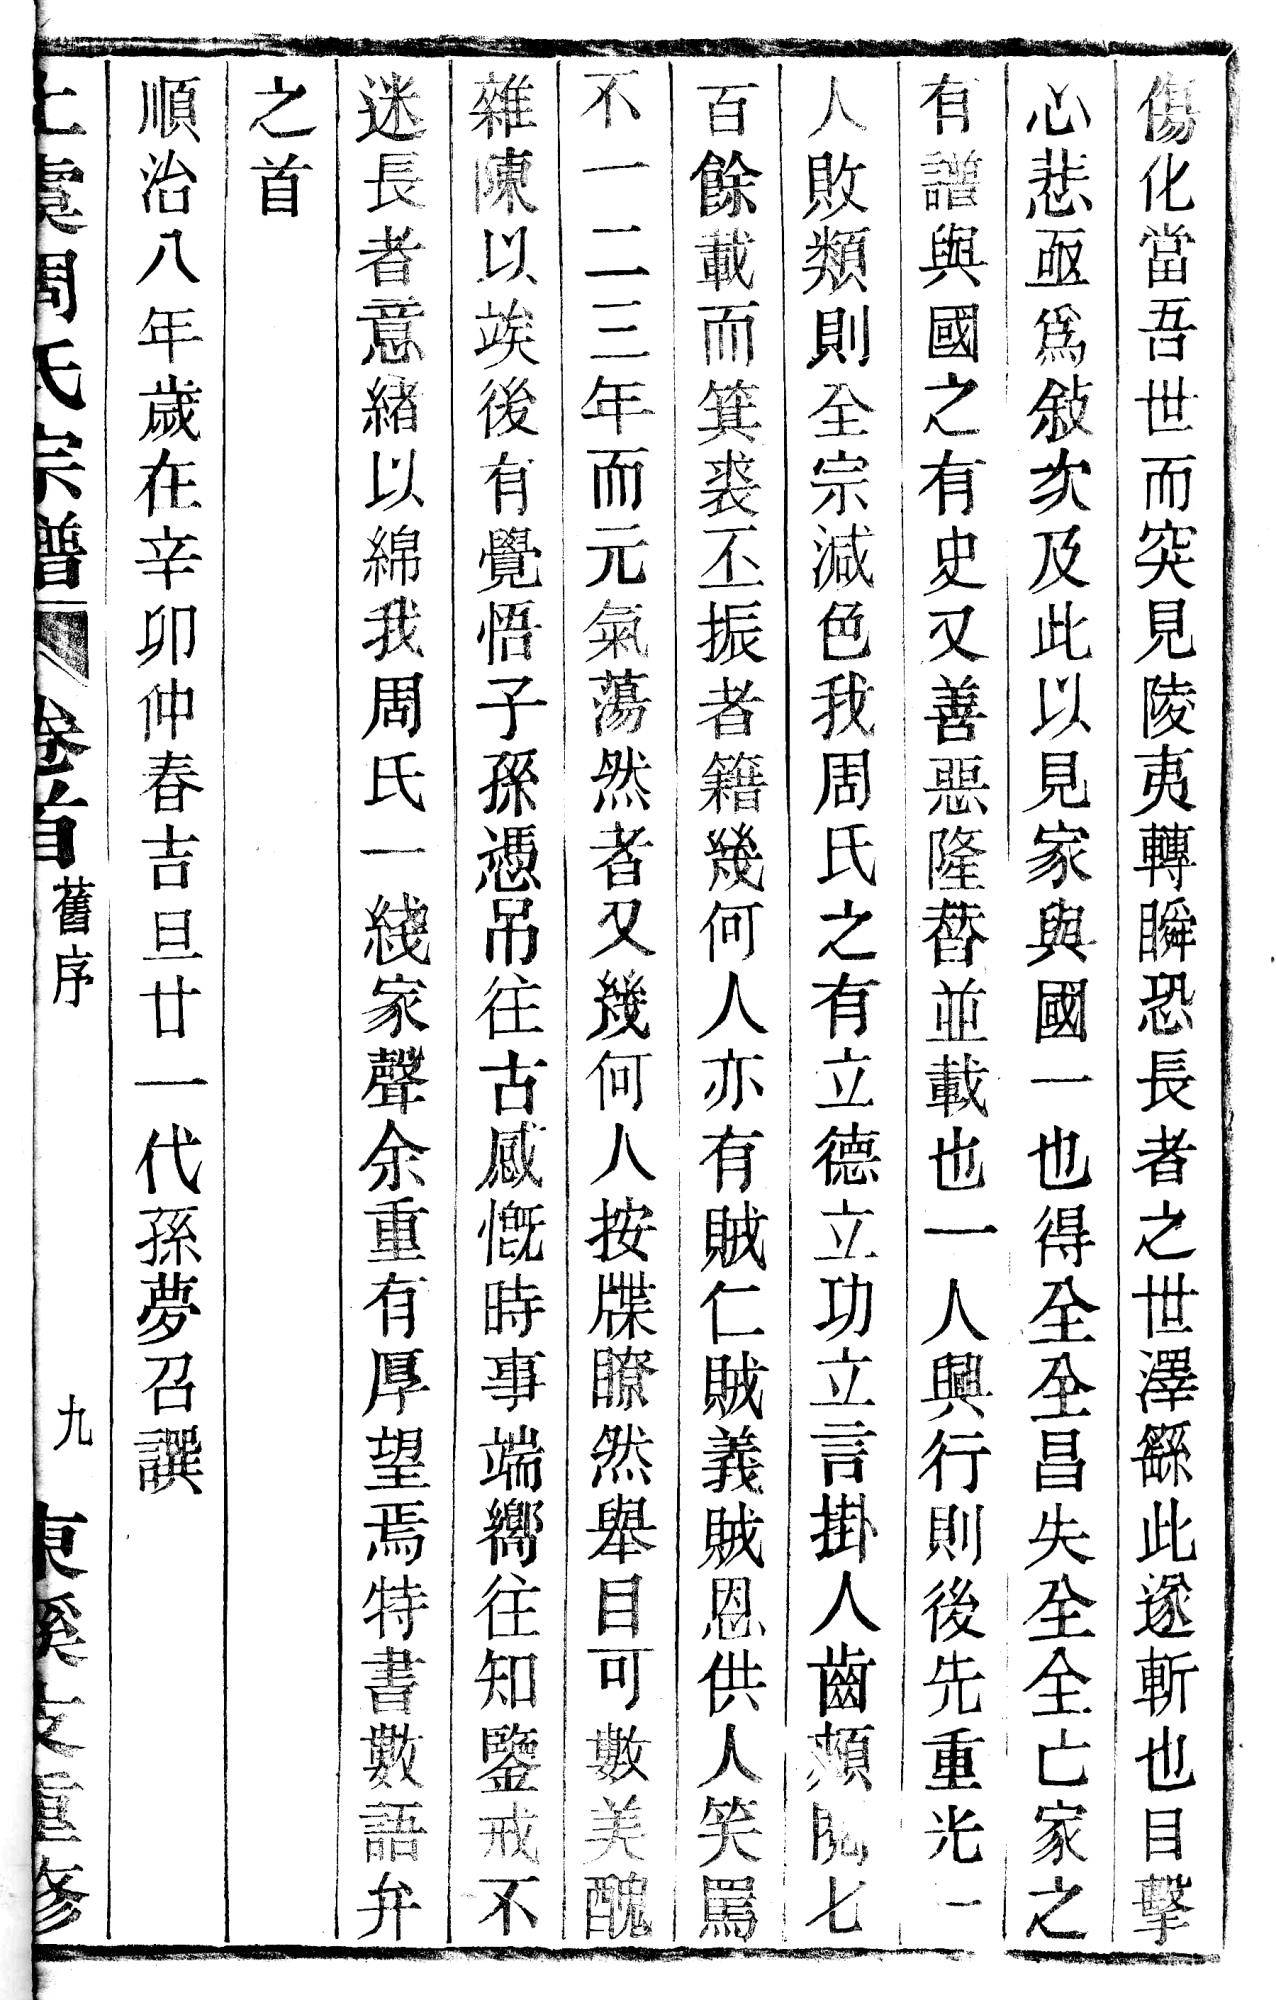 傷化當吾世而突見陵夷轉瞬恐長者之世澤繇此遂斬也目擊
心悲亟爲敍次及此以見家與國一也得全全昌失全全亡家之
有譜與國之有史又善惡隆替並載也一人興行則後先重光一
人敗類則全宗減色我周氏之有立德立功立言掛人齒頰閱七
百餘載而箕裘丕振者籍幾何人亦有賊仁賊義賊恩供人笑罵
不一二三年而元氣蕩然者又幾何人按牒瞭然舉目可數美醜
雜陳以竢後有覺悟子孫憑吊往古感慨時事端嚮往知鑒戒不
迷長者意緒以綿我周氏一綫家聲余重有厚望焉特書數語弁
之首
順治八年歲在辛卯仲春吉旦廿一代孫夢召譔
上虞周氏宗譜 卷首 舊序 九 東溪支重修